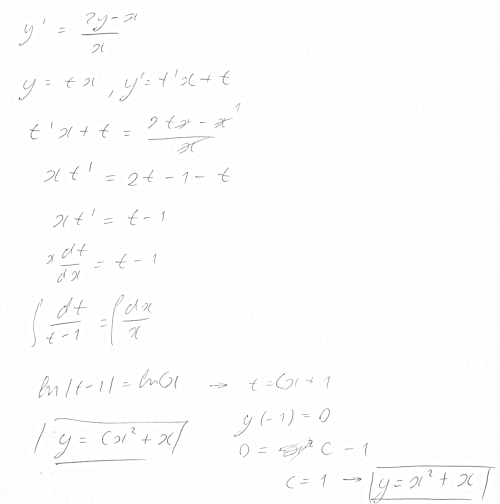 y' = (2y-x)/x
y = tx, y' = t'x+t
t'x+t = (2tx - x)/x 1
xt' = 2t-1-t
xt' = t-1
x dt/dx = t-1
∫ dt/(t-1) = ∫ dx/x
ln|t-1| = lnCx → t = Cx+1
y = Cx² + x
y(-1) = 0
0 = C - 1
C = 1 → y = x² + x